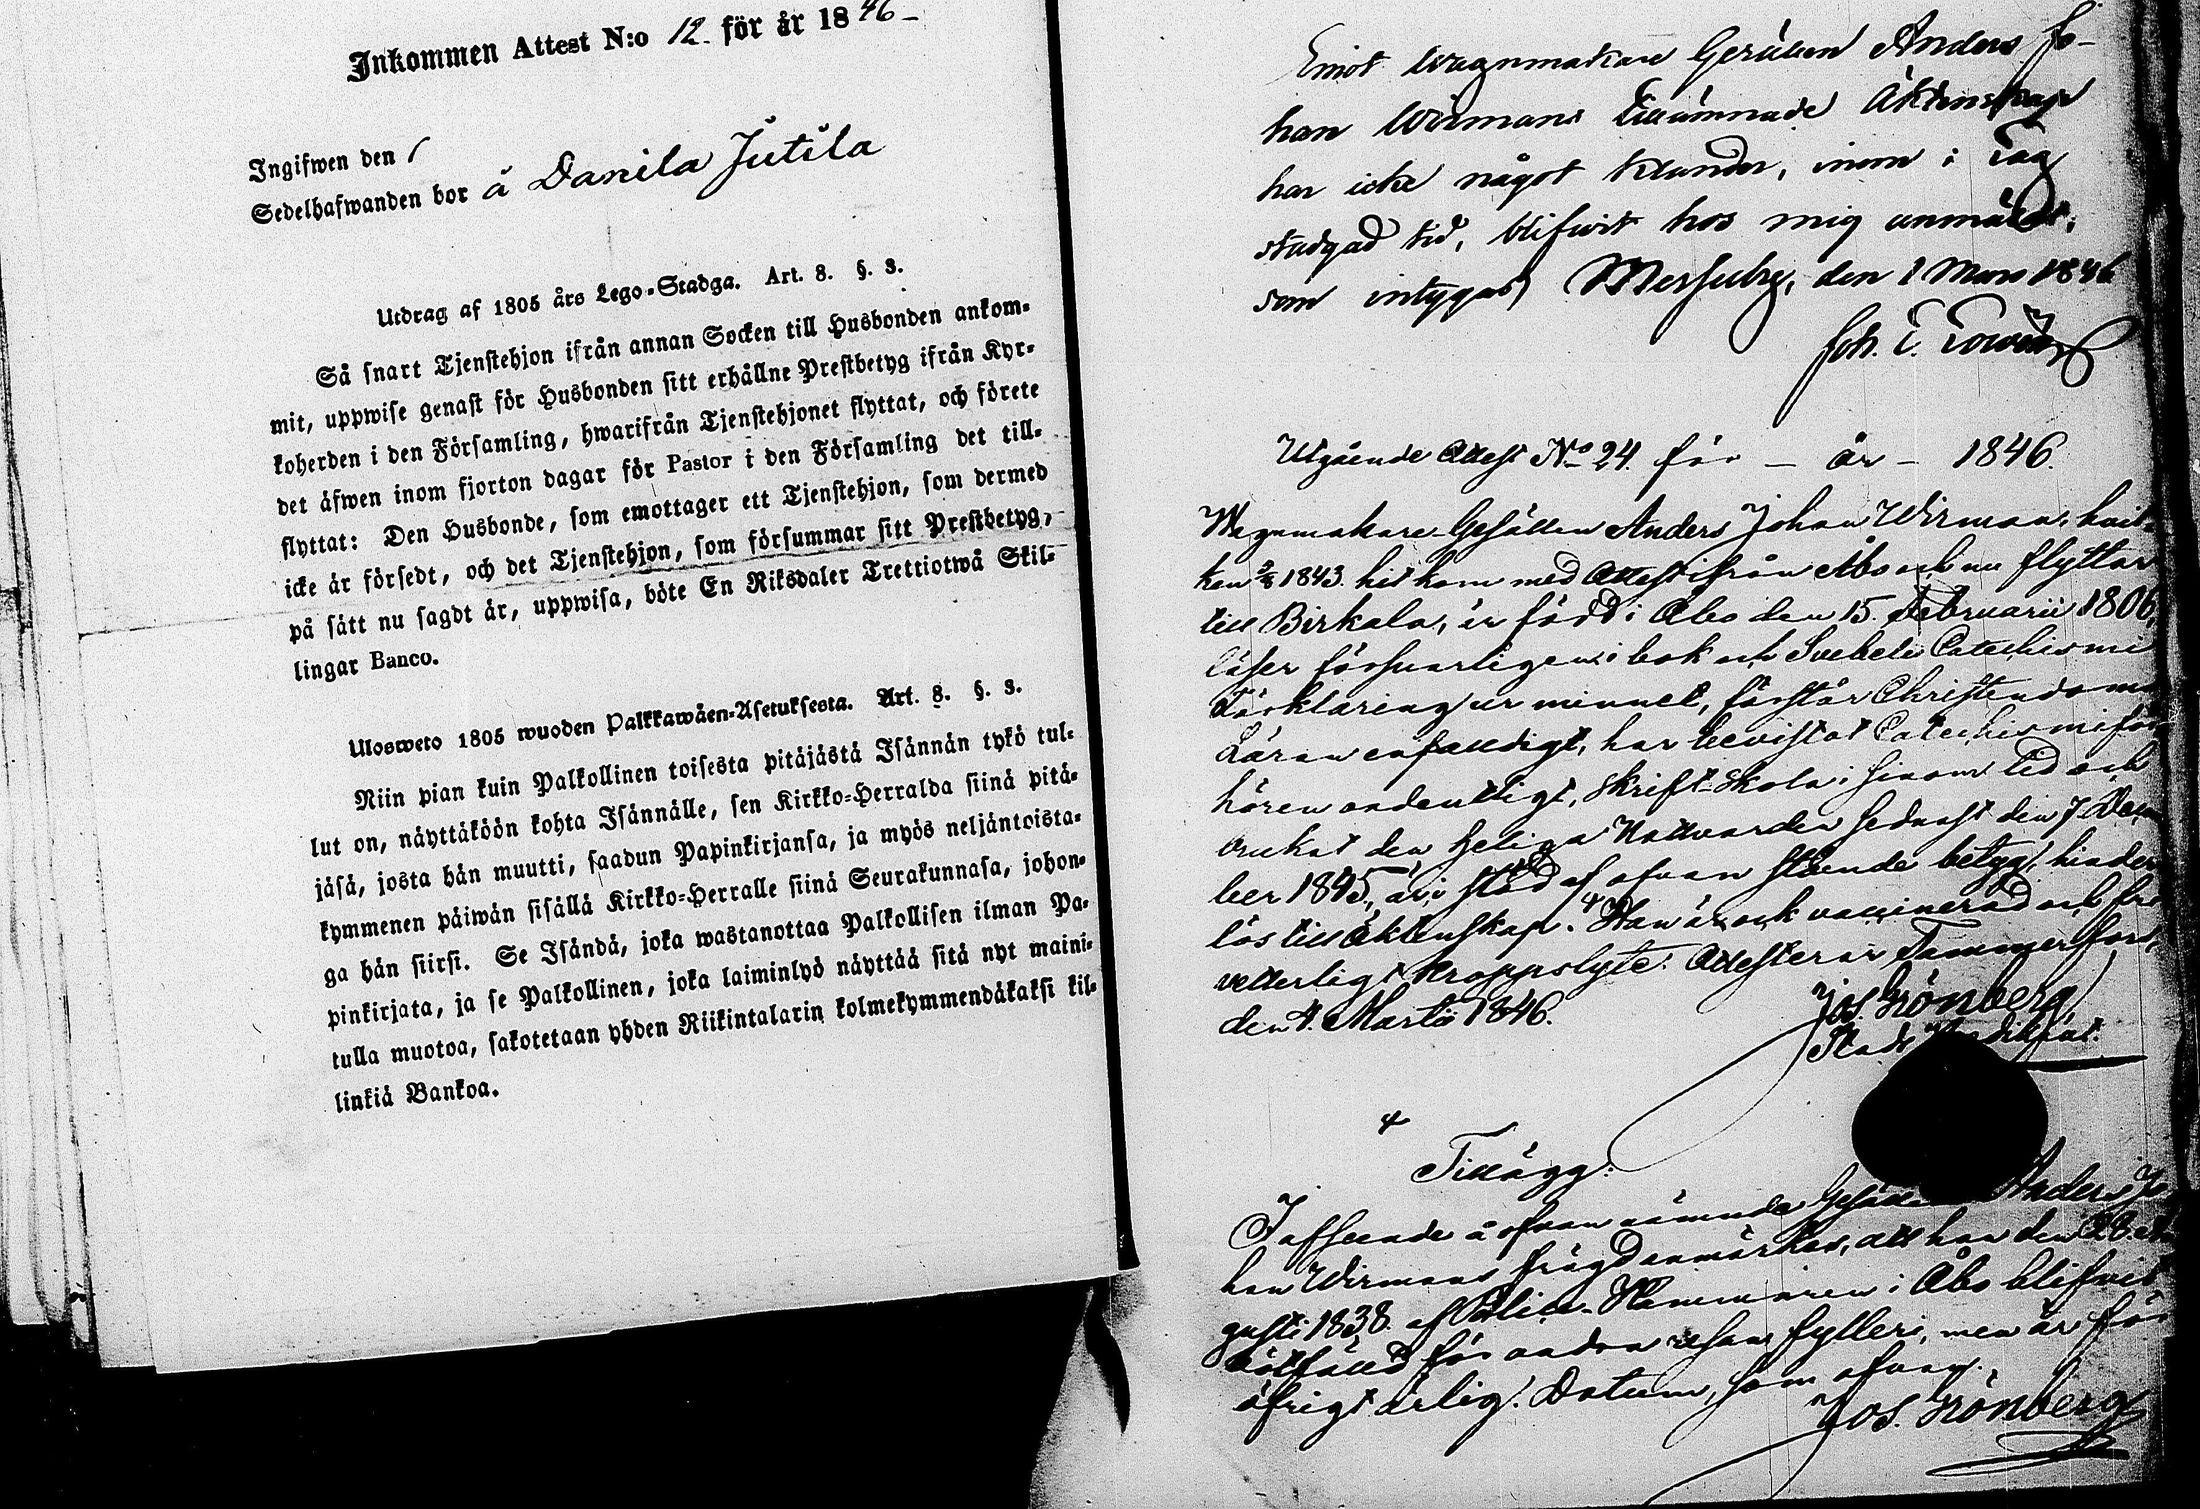 Inkommen Attest N:o 12. för år 1846 -
Ingifwen den
Sedelhafwanden bor å Danila Jutila
Utdrag af 1805 års Lego-Stadga. Art. 8. §. 3.
Så snart Tjenstehjon ifrån annan Socken till Husbonden ankom-
mit, uppwise genast för Husbonden sitt erhållne Prestbetyg ifrån Kyr-
koherden i den Församling, hwarifrån Tjenstehjonet flyttat, och förete
det äfwen inom fjorton dagar för Pastor i den Församling det till-
flyttat: Den Husbonde, som emottager ett Tjenstehjon, som dermed
icke är försedt, och det Tjenstehjon, som försummar sitt Prestbetyg,
på sätt nu sagdt är, uppwisa, böte En Riksdaler Trettiotwå Skil-
lingar Banco.
Ulosweto 1805 wuoden Palkkawäen-Asetuksesta. Art. 8. §. 3.
Niin pian kuin Palkollinen toisesta pitäjästä Isännän tykö tul-
lut on, näyttäköön kohta Isännälle, sen Kirkko-Herralda siinä pitä-
jäsä, josta hän muutti, saadun Papinkirjansa, ja myös neljäntoista-
kymmenen päiwän sisällä Kirkko-Herralle siinä Seurakunnasa, johon-
ga hän siirsi. Se Isändä, joka wastanottaa Palkollisen ilman Pa-
pinkirjata, ja se Palkollinen, joka laiminlyö näyttää sitä nyt maini-
tulla muotoa, sakotetaan yhden Riikintalarin kolmekymmendäkaksi kil-
linkiä Bankoa.
Emot Wagnmakare Gesällen Anders Jo-
han Wirmans tillämnade Äktenskap
har icke något klander, inom i Lag
stadgad tid, blifvit hos mig anmäldt,
som intygas, Messuby, den 1 Mars 1846
Joh. E.
Utgående Attest No 24. för - år - 1846.
Wagnmakare-Gesällen Anders Johan Wirman, hvil-
ken 1843. hit kom med Attest ifrån Åbo och nu flyttar
till Birkala, är född i Åbo den 15. Februarii 1806,
läser försvarligen i bok och Svebelii Catechismi
Förklaring ur minnet, förstår Christendoms
Läran enfaldigt, har bevistat Catechismiför-
hören ordentligt, Skrift-Skola i sinom tid och
brukat den Heliga Nattvarden sednast den 7 Decem
ber 1845, är, i stöd af ofvan stående betyg, hinder
lös till Äktenskap. + Han är ock vaccinerad och från
vetterligt kroppslyte. Attesterar Tammerfors,
den 4. Martii 1846.
Jos. Grönberg,
Stads
+
Tillägg:
I afseende å ofvan nämnde Gesällen Anders Jo
han Wirmans frägd anmärkes, att han den 28. Au
gusti 1838. af Police-Kammaren i Åbo blifvit
bötfälld för andra resan fylleri, men är för
öfrigt ärlig. Datum, som ofvan.
Jos. Grönberg